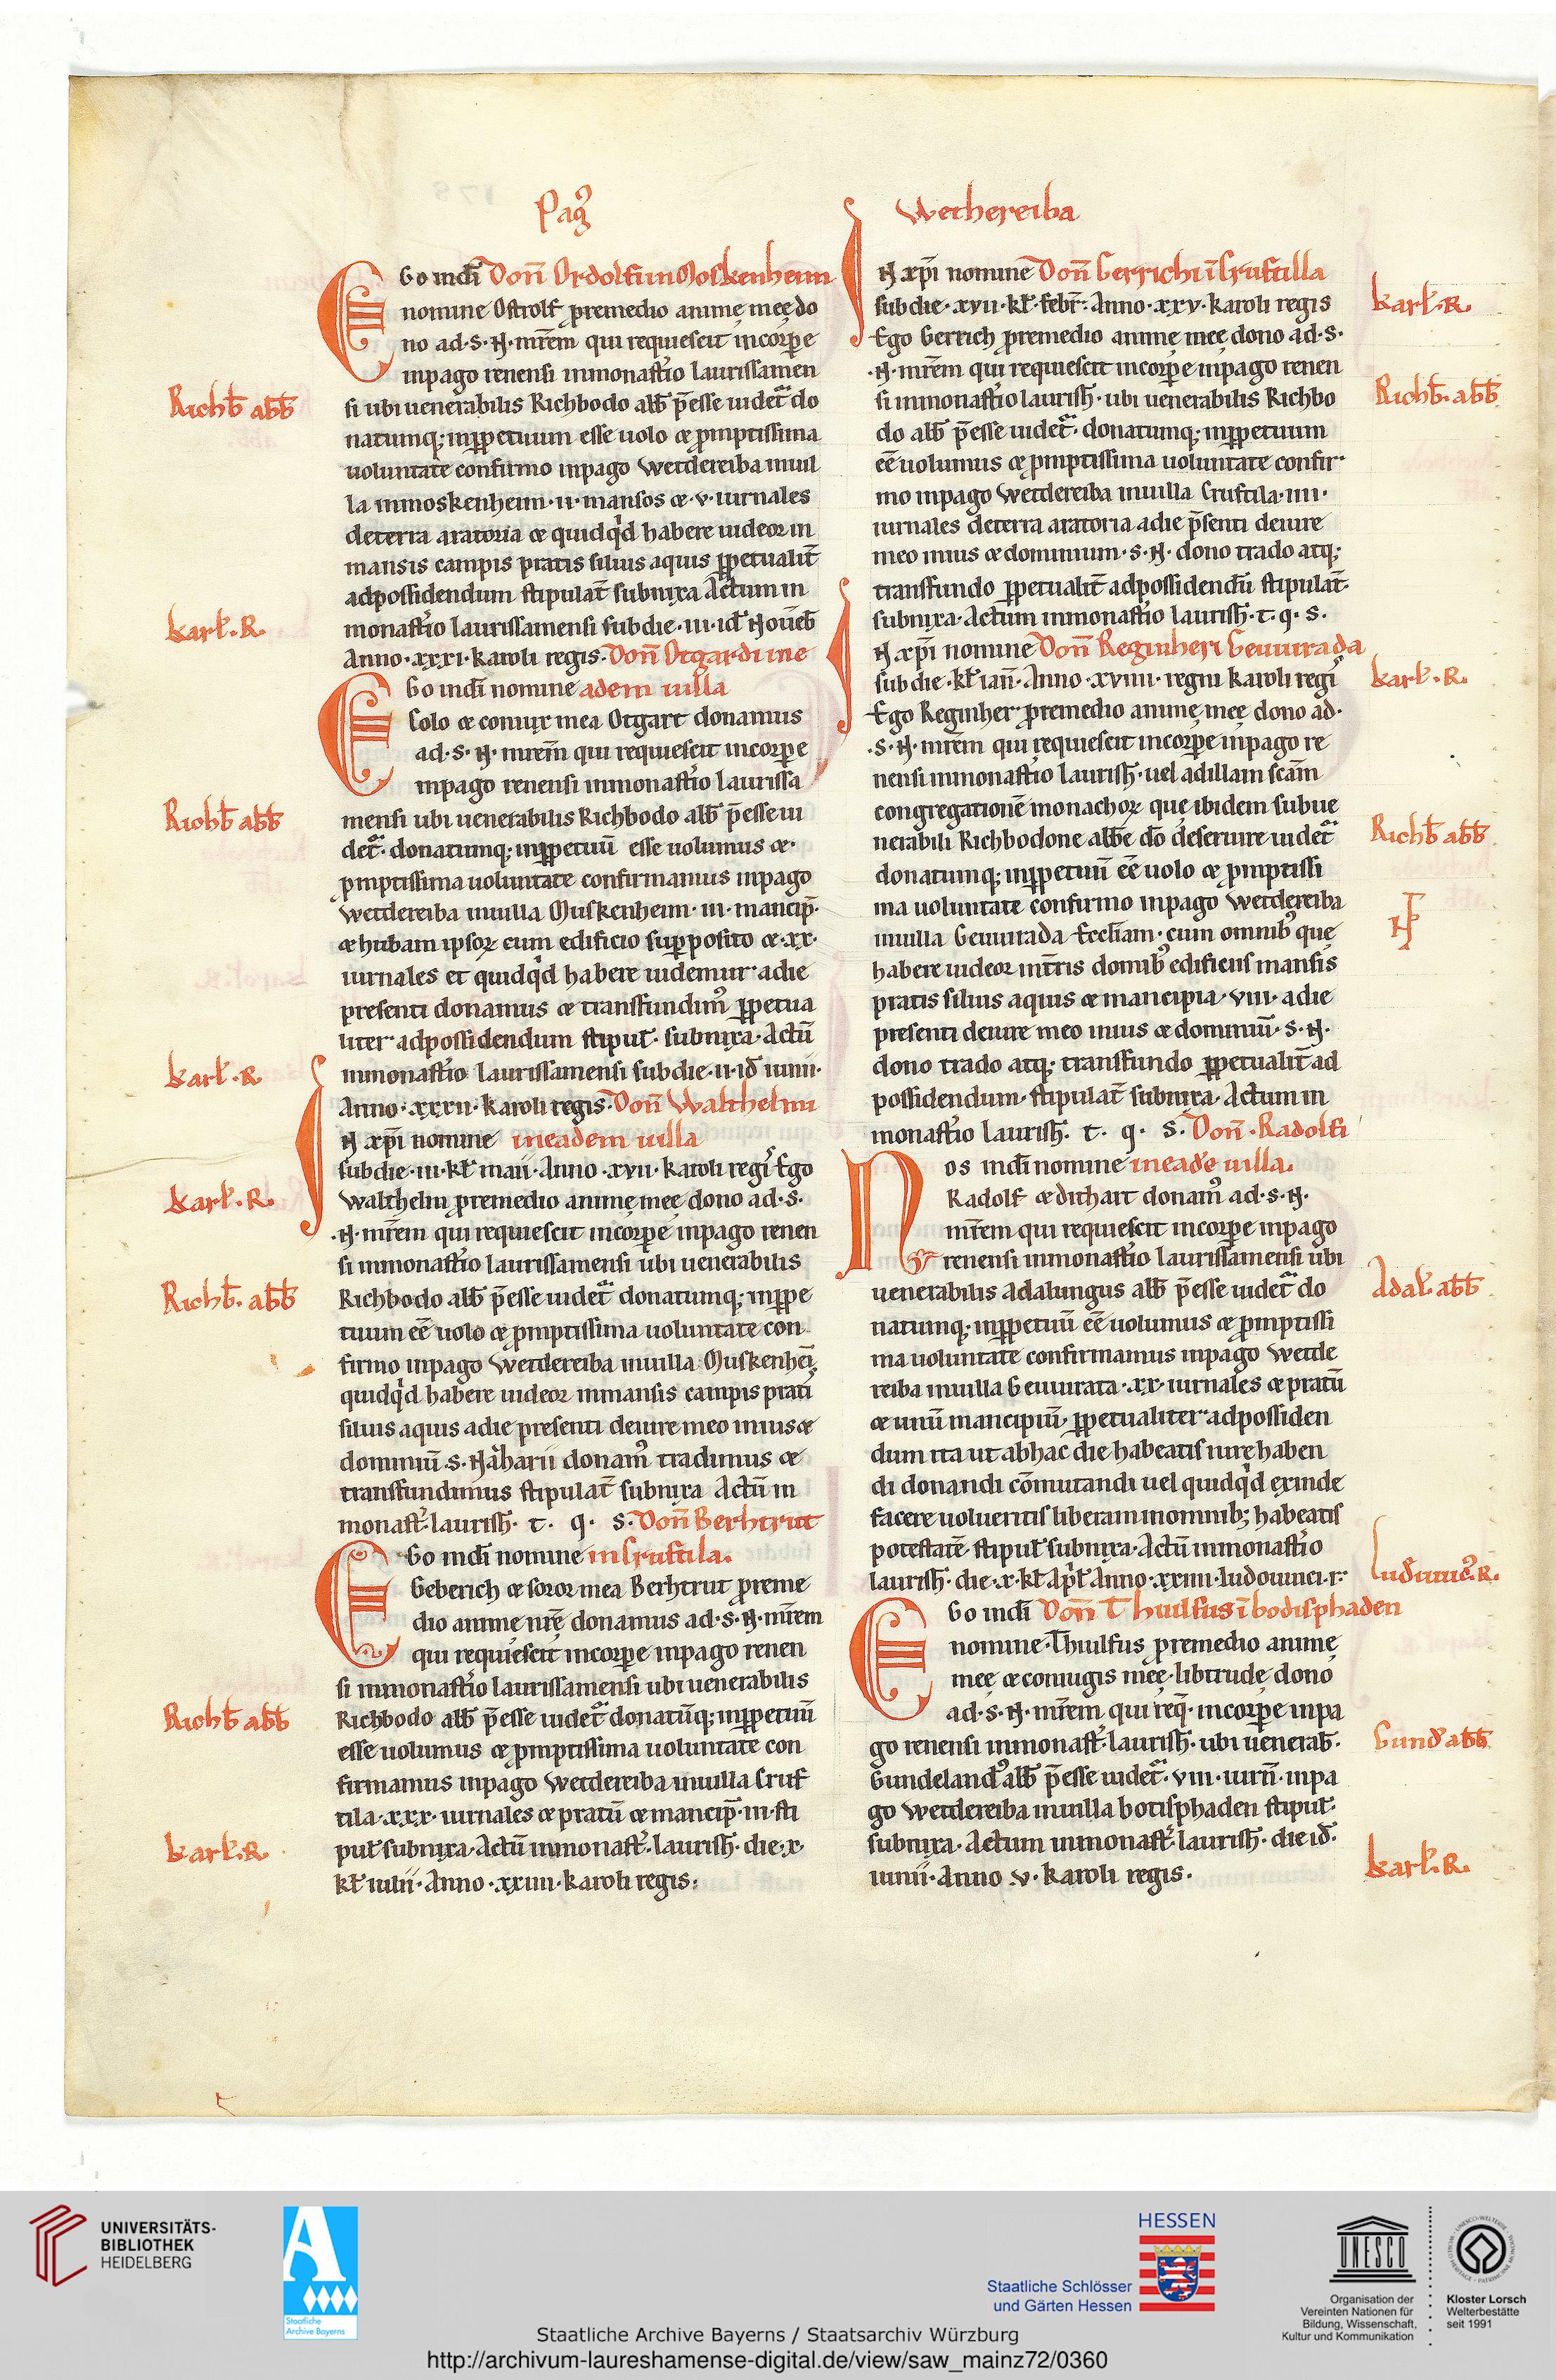 Pag᷒
Wethereiba
Ego indi Don̄ Ordolf in Moskenheim
nomine Ostrolf p̱remedio animę meę do
no ad·S·N·mr̄em qui requiescit incorp̱e
inpago renensi inmonast̓io laurissamen
si ubi uenerabilis Richbodo abb̄ p̄esse uidet᷑ do
natumq; inp̱petuum esse uolo & ꝓmptissima
uoluntate confirmo inpago Wetdereiba inuil
la inmoskenheim·ii·mansos &·v·iurnales
deterra aratoria & quidqͥd habere uideor in
mansis campis pratis siluis aquis p̱petualit̄
adpossidendum stipulat̄ subnixa Actum in
monast̓io laurissamensi subdie·iii·id̄ Nou̅eb̄
Anno·xxxi·karoli regis·Don̄ Otgardi ine
Ego indi nomine adem uilla
Colo & coniux mea Otgart donamus
ad·S·N·mr̄em qui requiescit incorp̱e
inpago renensi inmonast̓io laurissa
mensi ubi uenerabilis Richbodo abb̄ p̄esse ui
det᷑·donatumq; inp̱petuū esse uolumus &·
ꝓmptissima uoluntate confirmamus inpago
Wetdereiba inuilla Muskenheim·iii·mancip̄·
& hubam ipsoꝝ cum edificio sup̱posito &·xx·
iurnales et quidqͥd habere uidemur adie
presenti donamus & transfundim᷒ p̱petua
liter adpossidendum stipul̄·subnixa·Actū
inmonast̓io laurissamensi subdie·ii·id̄ iunii·
Anno·xxxii·karoli regis·Don̄ Walthelmi
IN xp̄i nomine ineadem uilla
subdie·iii·kl̄ maii·Anno·xvii·karoli regi᷒ Ego
Walthelm p̱remedio animę meę dono ad·S·
·N·mr̄em qui requiescit incorp̱e inpago renen
si inmonast̓io laurissamensi ubi uenerabilis
Richbodo abb̄ p̄esse uidet᷑ donatumq; inp̱pe
tuum eē uolo & ꝓmptissima uoluntate con
firmo inpago Wetdereiba inuilla Muskenhei̅,
quidqͥd habere uideor inmansis campis prati᷒
siluis aquis adie presenti deiure meo inius &
dominiū·S·Nazarii donam᷒ tradimus &
transfundimus stipulat̄ subnixa Actū in
monast̓·laurish̄·t·q·S·Don̄ Berhtrut
Ego indi nomine in Cruftila.
Geberich & soror mea Berhtrut p̱reme
dio animę nr̄ę donamus ad·S·N·mr̄em
qui requiescit incorp̱e inpago renen
si inmonast̓io laurissamensi ubi uenerabilis
Richbodo abb̄ p̄esse uidet᷑ donatūq; inp̱petuū
esse uolumus & ꝓmptissima uoluntate con
firmamus inpago Wetdereiba inuilla Cruf
tila·xxx·iurnales & pratū & mancip̄·iii·sti
pul̄ subnixa·Actū inmonast̓·laurish̄·die·x·
kl̄ iulii·Anno·xxiiii·karoli regis:
Richb̄ abb̄
karl̄·R·
Richb̄ abb̄
karl̄·R·
karl̄·R·
Richb̄·abb̄
Richb̄ abb̄
karl̄·R·
IN xp̄i nomine Don̄ Gerrichi ī Cruftilla
subdie·xvii·kl̄·febr̄·Anno·xxv·karoli regis
Ego Gerrich p̱remedio animę meę dono ad·S·
·N·mr̄em qui requiescit incorp̱e inpago renen
si inmonast̓io laurish̄·ubi uenerabilis Richbo
do abb̄ p̄esse uidet᷑·donatumq; inp̱petuum
eē uolumus & ꝓmptissima uoluntate confir
mo inpago Wetdereiba inuilla Cruftila·iiii·
iurnales deterra aratoria adie p̄senti deiure
meo inius & dominium·S·N·dono trado atq;
transfundo p̱petualit̄ adpossidendū stipulat̄·
subnixa·Actum inmonast̓io laurish̄·t·q·S·
IN xp̄i nomine Don̄ Reginheri Geuurada
subdie·kl̄ ian̄·Anno·xviiii·regni karoli regi᷒
Ego Reginher p̱remedio animę meę dono ad·
·S·N·mr̄em qui requiescit incorp̱e inpago re
nensi inmonast̓io laurish̄·uel adillam scām
congregationē monachoꝝ que ibidem subue
nerabili Richbodone abb̄e dō deseruire uidet᷑
donatumq; inp̱petuū eē uolo & ꝓmptissi
ma uoluntate confirmo inpago Wetdereiba
inuilla Geuurada Eccl̄iam·cum omnib᷒ que
habere uideor int̓ris domib᷒ edificiis mansis
pratis siluis aquis & mancipia·viii·adie
presenti deiure meo inius & dominiū·S·N·
dono trado atq; transfundo p̱petualit̄ ad
possidendum·stipulat̄ subnixa·Actum in
monast̓io laurish̄·t·q·S·Don̄·Radolfi
Nos indi nomine ineadē uilla.
Radolf & dithart donam᷒ ad·S·N·
mr̄em qui requiescit incorp̱e inpago
renensi inmonast̓io laurissamensi ubi
uenerabilis Adalungus abb̄ p̄esse uidet᷑ do
natumq; inp̱petuū eē uolumus & ꝓmptissi
ma uoluntate confirmamus inpago Wetde
reiba inuilla Geuurata·xx·iurnales & pratū
& unū mancipiū·p̱petualiter adpossiden
dum ita ut abhac die habeatis iure haben
di donandi cōmutandi uel quidqͥd exinde
facere uolueritis liberam inomnib; habeatis
potestatē stipul̄ subnixa·Actū inmonast̓io
laurish̄·die·x·kl̄ Apr̄l Anno·xxiiii·ludouuici·r·
Ego indi Don̄ Thiulfus ī bodisphaden
nomine·Thiulfus p̱remedio animę
meę & coniugis meę·libtrude dono
ad·S·N·mr̄em qui req̄·incorp̱e inpa
go renensi inmonast̓·laurish̄·ubi uenerab̄·
Gundeland᷒ abb̄ p̄esse uidet᷑·viii·iurn̄·inpa
go Wetdereiba inuilla botisphaden stipul̄·
subnixa·Actum inmonast̓·laurish̄·die id̄·
iunii·Anno v·karoli regis·
karl̄·R·
Richb̄·abb̄
karl̄·R·
Richb̄ abb̄
Adal̄·abb̄
Ludiuuic᷒·R·
Gund̄ abb̄
karl̄·R·
UNIVERSITÄTS-
BIBLIOTHEK
HEIDELBERG
Staatliche
Archive Bayerns
HESSEN
Staatliche Schlösser
und Gärten Hessen
UNESCO
Organisation der
Vereinten Nationen für
Bildung, Wissenschaft,
Kultur und Kommunikation
Kloster Lorsch
Welterbestätte
seit 1991
Staatliche Archive Bayerns / Staatsarchiv Würzburg
http://archivum-laureshamense-digital.de/view/saw_mainz72/0360